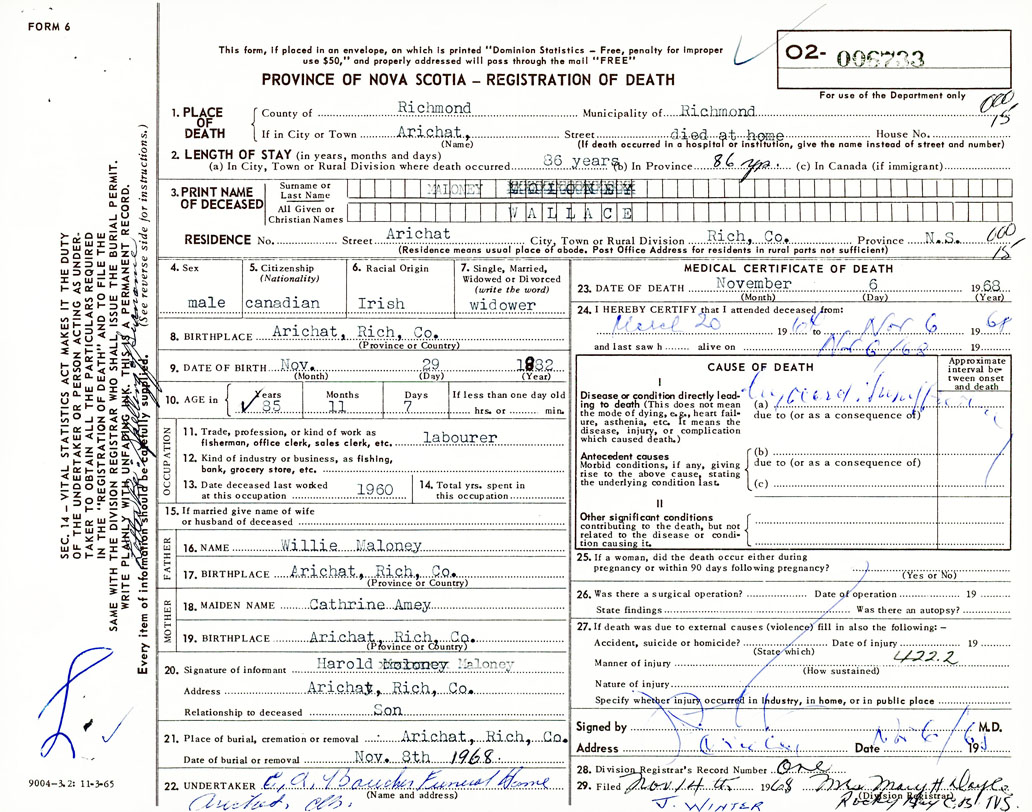 FORM 6
This form, if placed in an envelope, on which is printed "Dominion Statistics – Free, penalty for improper
use $50," and properly addressed will pass through the mail "FREE"
PROVINCE OF NOVA SCOTIA – REGISTRATION OF DEATH
O2- 006733
For use of the Department only
000
15
1. PLACE OF DEATH
County of Richmond Municipality of Richmond
If in City or Town Arichat, Street died at home House No.
(Name) (If death occurred in a hospital or institution, give the name instead of street and number)
2. LENGTH OF STAY (in years, months and days)
(a) In City, Town or Rural Division where death occurred 86 years (b) In Province 86 yrs. (c) In Canada (if immigrant)
3. PRINT NAME OF DECEASED
Surname or Last Name MALONEY
All Given or Christian Names WALLACE
RESIDENCE No. Street Arichat City, Town or Rural Division Rich, Co. Province N.S.
(Residence means usual place of abode. Post Office Address for residents in rural parts not sufficient)
000
15
4. Sex male
5. Citizenship (Nationality) canadian
6. Racial Origin Irish
7. Single, Married, Widowed or Divorced (write the word) widower
8. BIRTHPLACE Arichat, Rich, Co.
(Province or Country)
9. DATE OF BIRTH Nov. 29 1882
(Month) (Day) (Year)
10. AGE in Years 85 Months 11 Days 7 If less than one day old hrs. or min.
OCCUPATION
11. Trade, profession, or kind of work as fisherman, office clerk, sales clerk, etc. labourer
12. Kind of industry or business, as fishing, bank, grocery store, etc.
13. Date deceased last worked at this occupation 1960
14. Total yrs. spent in this occupation
15. If married give name of wife or husband of deceased
FATHER
16. NAME Willie Maloney
17. BIRTHPLACE Arichat, Rich, Co.
(Province or Country)
MOTHER
18. MAIDEN NAME Cathrine Amey
19. BIRTHPLACE Arichat, Rich, Co.
(Province or Country)
20. Signature of informant Harold Maloney
Address Arichat, Rich, Co.
Relationship to deceased Son
21. Place of burial, cremation or removal Arichat, Rich, Co.
Date of burial or removal Nov. 8th 1968
22. UNDERTAKER C. A. Boucher Funeral Home
(Name and address)
MEDICAL CERTIFICATE OF DEATH
23. DATE OF DEATH November 6 1968
(Month) (Day) (Year)
24. I HEREBY CERTIFY that I attended deceased from:
March 20 19 to Nov 6 1968
and last saw h alive on Nov 6/68 19
CAUSE OF DEATH
Approximate interval between onset and death
I
Disease or condition directly leading to death (This does not mean the mode of dying, e.g., heart failure, asthenia, etc. It means the disease, injury, or complication which caused death.)
(a)
due to (or as a consequence of)
Antecedent causes
Morbid conditions, if any, giving rise to the above cause, stating the underlying condition last.
(b)
due to (or as a consequence of)
(c)
II
Other significant conditions
contributing to the death, but not related to the disease or condition causing it.
25. If a woman, did the death occur either during
pregnancy or within 90 days following pregnancy?
(Yes or No)
26. Was there a surgical operation? Date of operation 19
State findings Was there an autopsy?
27. If death was due to external causes (violence) fill in also the following: –
Accident, suicide or homicide? Date of injury 19
(State which)
Manner of injury 422.2
(How sustained)
Nature of injury
Specify whether injury occurred in industry, in home, or in public place
Signed by M.D.
Address Date Nov 6/ 19
28. Division Registrar's Record Number One
29. Filed Nov 14th 1968 Mrs Mary H Doyle
(Division Registrar)
J. WINTER
SEC. 14 – VITAL STATISTICS ACT MAKES IT THE DUTY
OF THE UNDERTAKER OR PERSON ACTING AS UNDER-
TAKER TO OBTAIN ALL THE PARTICULARS REQUIRED
IN THE "REGISTRATION OF DEATH" AND TO FILE THE
SAME WITH THE DIVISION REGISTRAR WHO SHALL ISSUE THE BURIAL PERMIT.
WRITE PLAINLY WITH UNFADING INK. THIS IS A PERMANENT RECORD.
Every item of information should be carefully supplied. (See reverse side for instructions.)
9004-3.2: 11-3-65